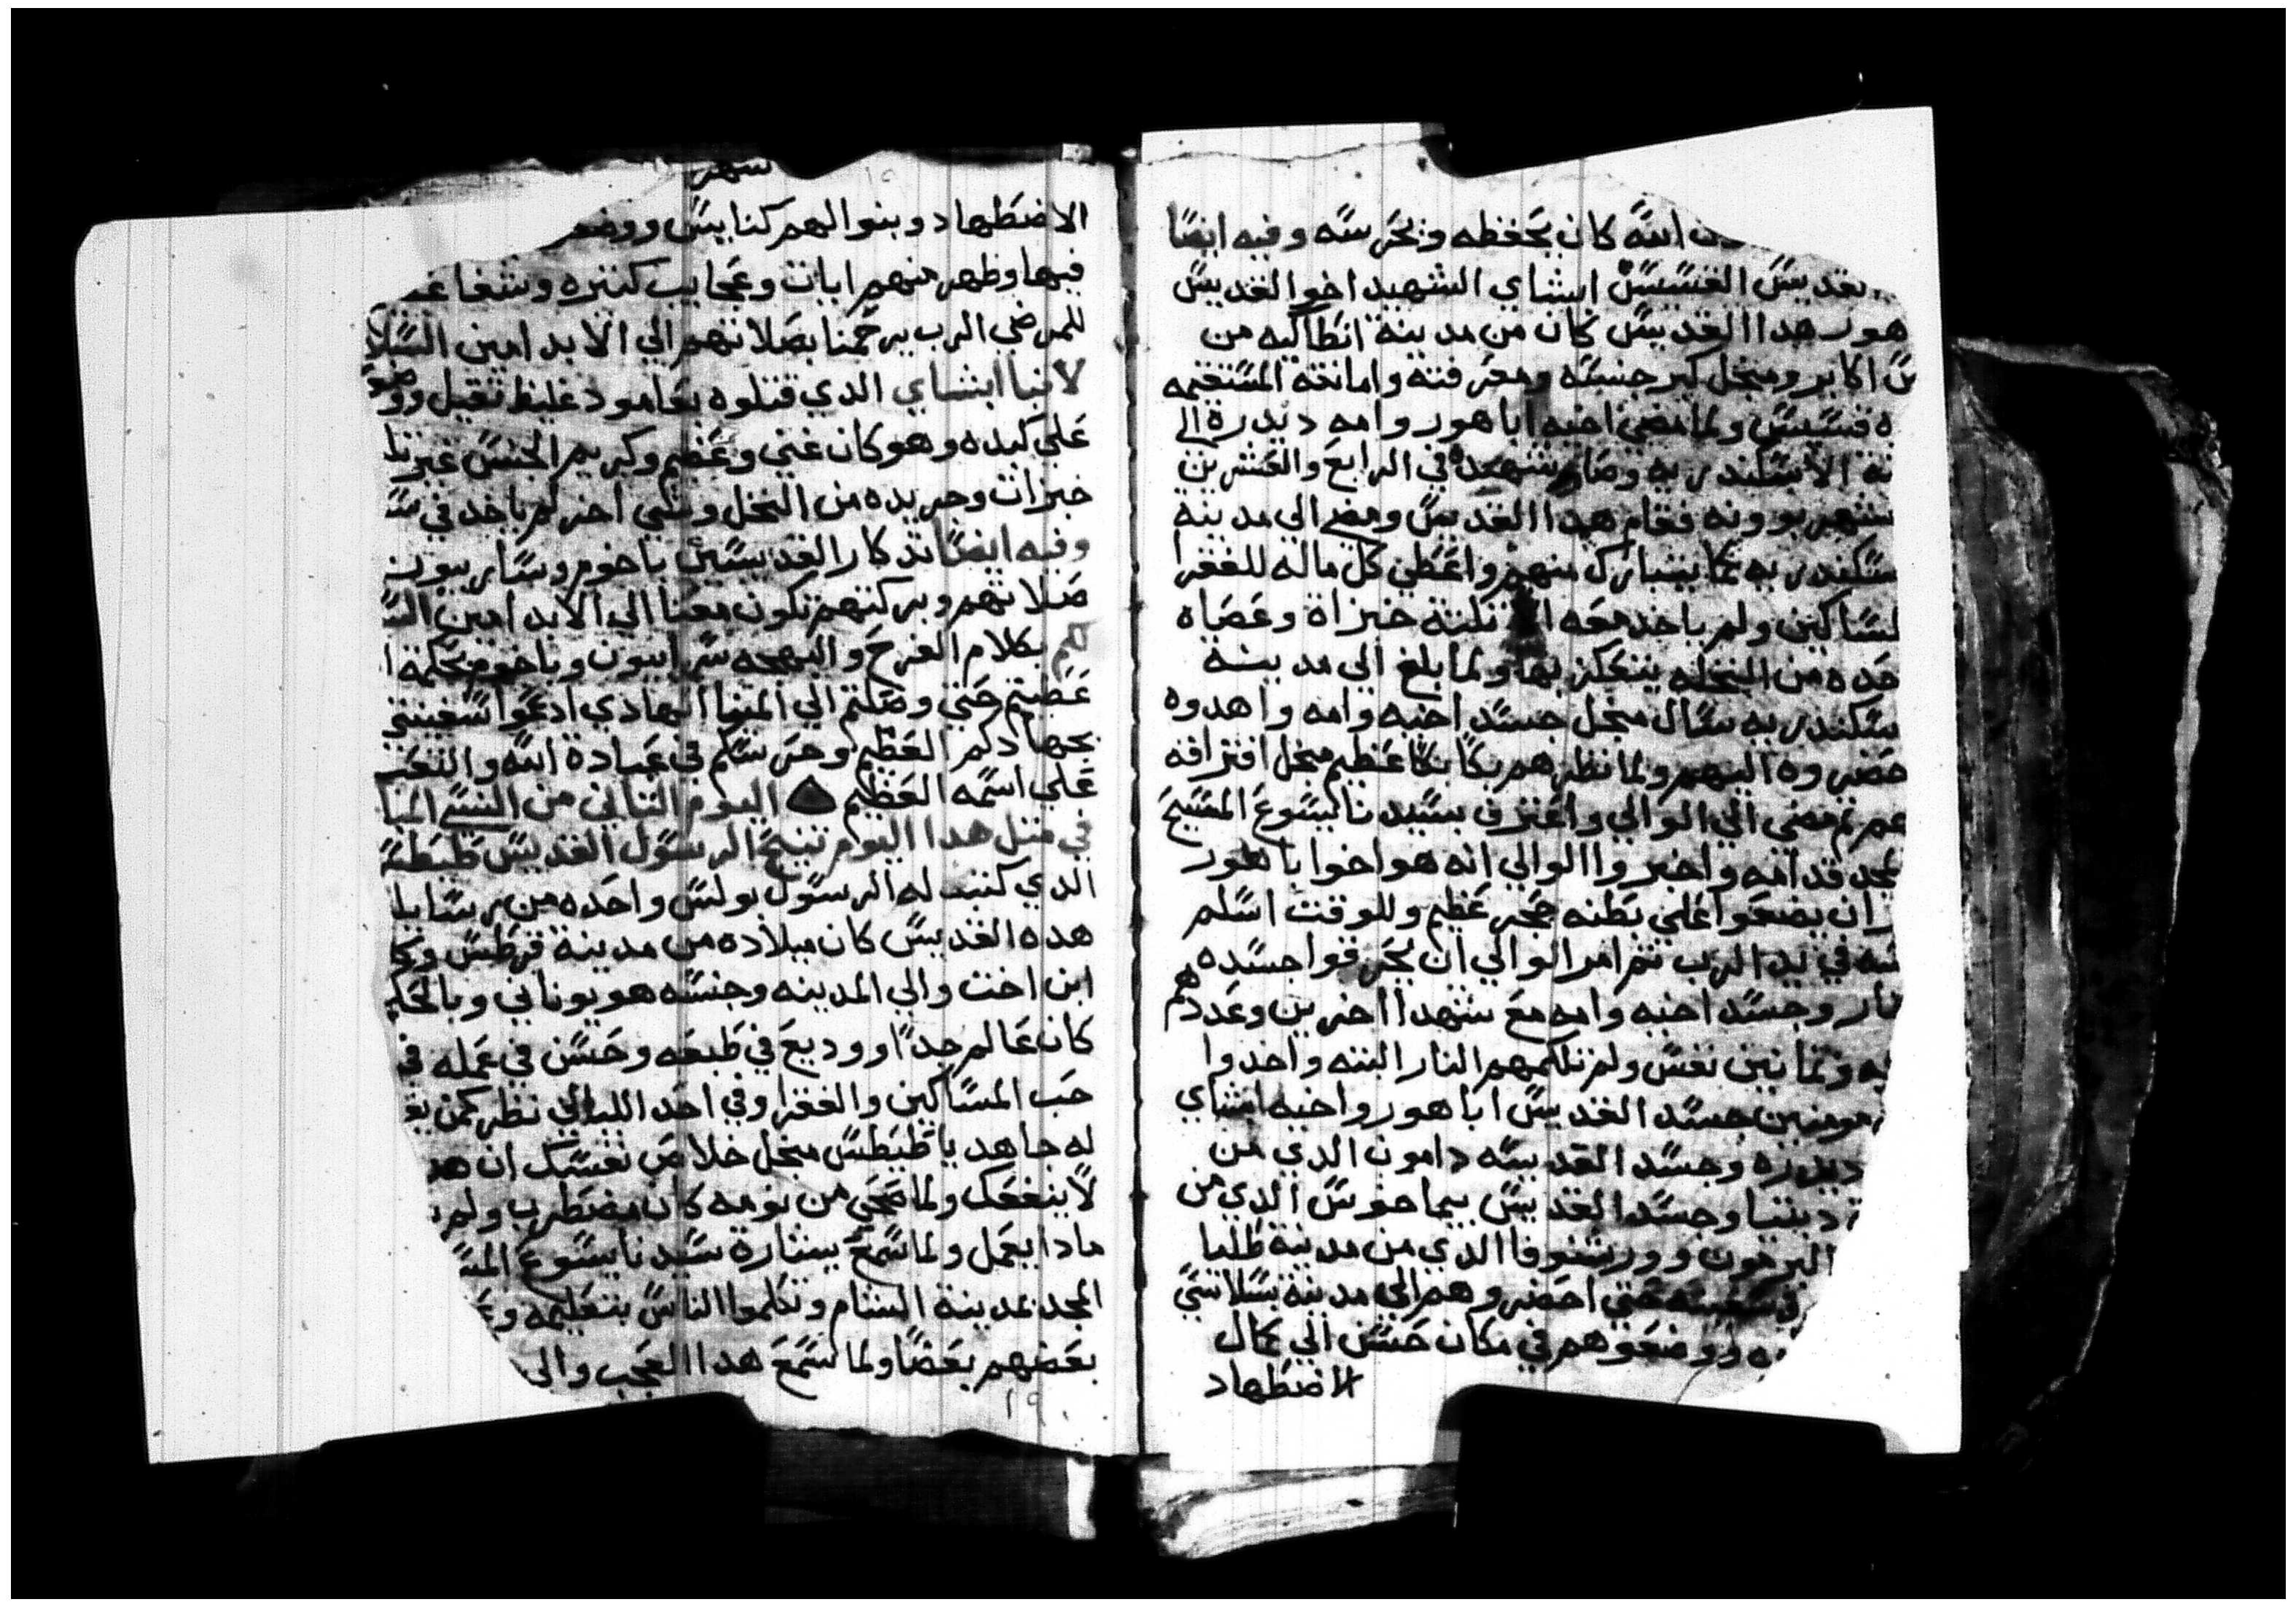 الله كان يحفظه ويحرسه وفيه ايضا
القسيس ابشاي الشهيد اخو القديس
هور هدا القديس كان من مدينة انطاكيه من
اكابر ومنجل كبر جنسه ومعرفته وامانته المستقيمه
قسيس ولما مضي اخيه ابا هور وامه ديدره الي
الاسكندريه وصارو شهدا في الرابع والعشرين
شهر بوونه فقام هدا القديس ومضي الي مدينة
سكندريه كما يتبارك منهم واعطي كل ماله للفقرا
لمساكين ولم ياخد معه الا تلتة خبزاة وعصاه
حده من النخله يتعكز بها ولما بلغ الي مدينة
سكندريه سال منجل جسد اخيه وامه واهدوه
حضروه اليهم ولما نظرهم بكا بكا عظيم منجل افتراقه
هم تم مضي الي الوالي واعترف بسيدنا يسوع المسيح
لمجد قدامه واخبروا الوالي انه هو اخوا باهور
ان يضعوا علي بطنه حجر عظيم وللوقت اسلم
في يد الرب تم امر الوالي ان يحرقوا جسده
وجسد اخيه وامه مع شهدا اخرين وعددهم
وتمانين نفس ولم تلمهم النار البته واخدوا
مومنين جسد القديس ابا هور واخيه ابشاي
ديدره وجسد القديسه دامون الدي من
دبنيا وجسد القديس بيماخوس الدي من
البرمون وورشنوفا الدي من مدينة طلما
في سفينه حتي احضروهم الي مدينة بسلاتسي
ووضعوهم في مكان حسن الي كمال
الاضطهاد
شهر
الاضطهاد وبنوا لهم كنايس ووضعو
فيها وظهر منهم ايات وعجايب كتيره وشفا عظيم
للمرضي الرب يرحمنا بصلاتهم الي الابد امين السلا
لانبا ابشاي الدي قتلوه بعامود غليظ تقيل ووضع
علي كبده وهو كان غني وعظيم وكريم الجنس غير
خبزات وجريده من النخل وشي اخر لم ياخد في
وفيه ايضا تدكار القديسين باخوم وسارابيون
صلاتهم وبركتهم تكون معنا الي الابد امين
لكم بكلام الفرح والبهجه سرابيون وباخوم بحكمة
غصبتم حتي وصلتم الي المينا الهادي ادعوا لسفينتي
بجهادكم العظيم وحرسكم في عبادة الله والتعب
علي اسمه العظيم اليوم التاني من النسي المبا
في متل هدا اليوم تنيح الرسول القديس طيطس
الدي كتب له الرسول بولس واحده من رسايل
هده القديس كان ميلاده من مدينة قرطس وكا
ابن اخت والي المدينه وجنسه هو يوناني وبالحكم
كان عالم جدا ووديع في طبعه وحسن في عمله في
حب المساكين والفقرا وفي احد الليالي نظر كمن يقو
له جاهد يا طيطس منجل خلاص نفسك ان هد
لا ينفعك ولما صحي من نومه كان مضطرب ولم
مادا يعمل ولما سمع بشارة سيدنا يسوع المسـ
المجد بمدينة الشام وتكلموا الناس بتعليمه و
بعضهم بعضا ولما سمع هدا العجب والي